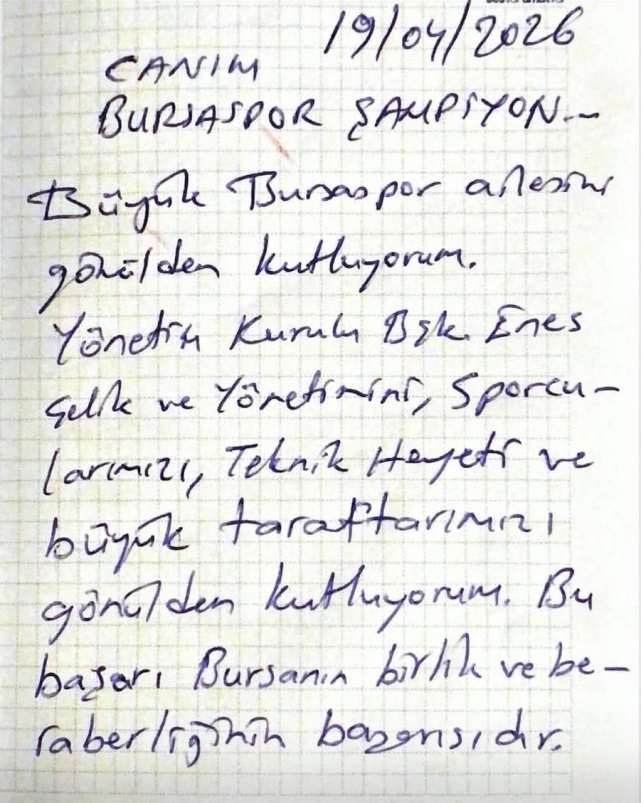 19/04/2026
CANIM
BURSASPOR ŞAMPİYON..
Büyük Bursaspor ailesini
gönülden kutluyorum.
Yönetim Kurulu Bşk. Enes
Çelik ve Yönetimini, Sporcu-
larımızı, Teknik Heyeti ve
büyük taraftarımızı
gönülden kutluyorum. Bu
başarı Bursanın birlik ve be-
raberliğinin başarısıdır.